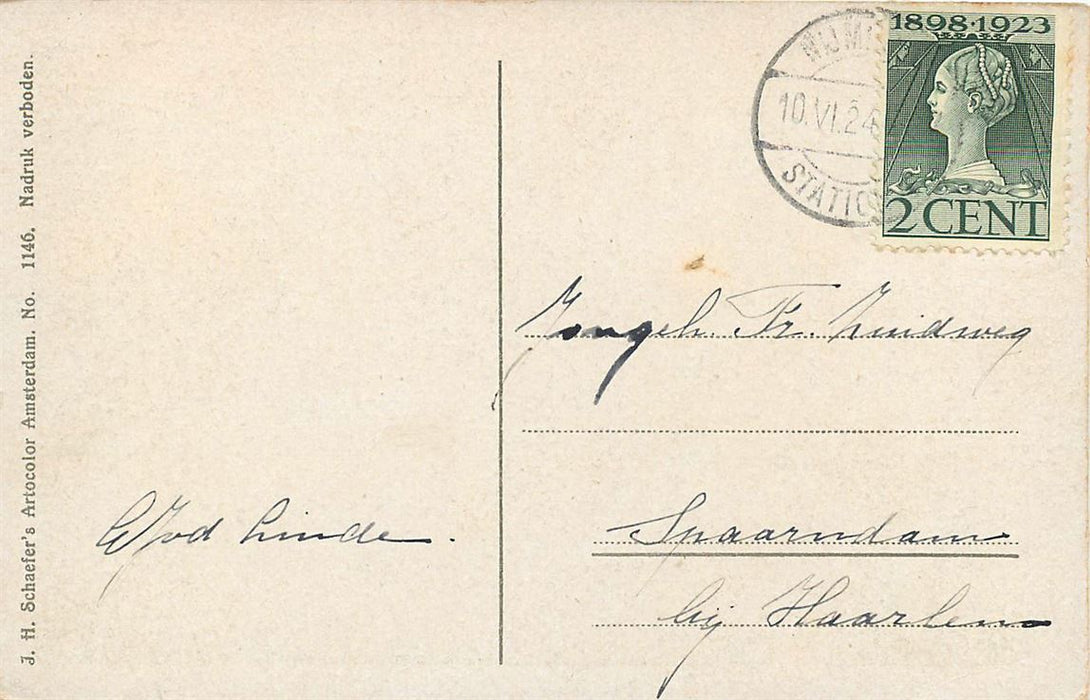 J. H. Schaefer's Artocolor Amsterdam. No. 1146. Nadruk verboden.
NIJM
10.VI.24
STATIO
1898·1923
2 CENT
Jongeh. Fr. Zuidweg
Spaarndam
bij Haarlem
Linde.